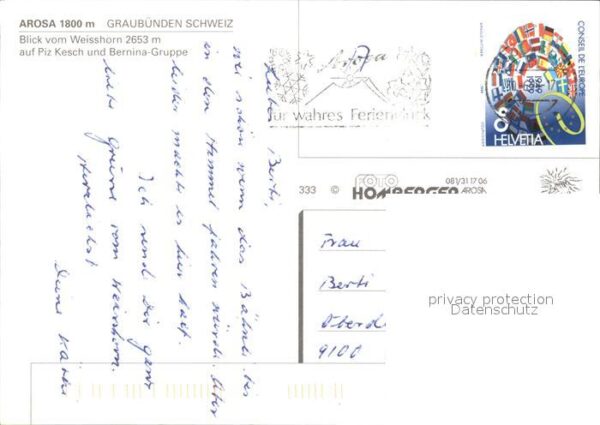 AROSA 1800 m GRAUBÜNDEN SCHWEIZ
Blick vom Weisshorn 2653 m
auf Piz Kesch und Bernina-Gruppe
Arosa
für wahres Ferienglück
CONSEIL DE L'EUROPE
1949
1989
90
HELVETIA
333 © FOTO HOMBERGER 081/31 17 06 AROSA
Liebe Berti,
wie schön wenn das Bähnli bis
in den Himmel fahren würde. Aber
leider macht es hier halt.
Ich send Dir ganz
liebe Grüsse vom Weisshorn.
Herzlichst
Deine
Frau
Berti
9100
privacy protection
Datenschutz